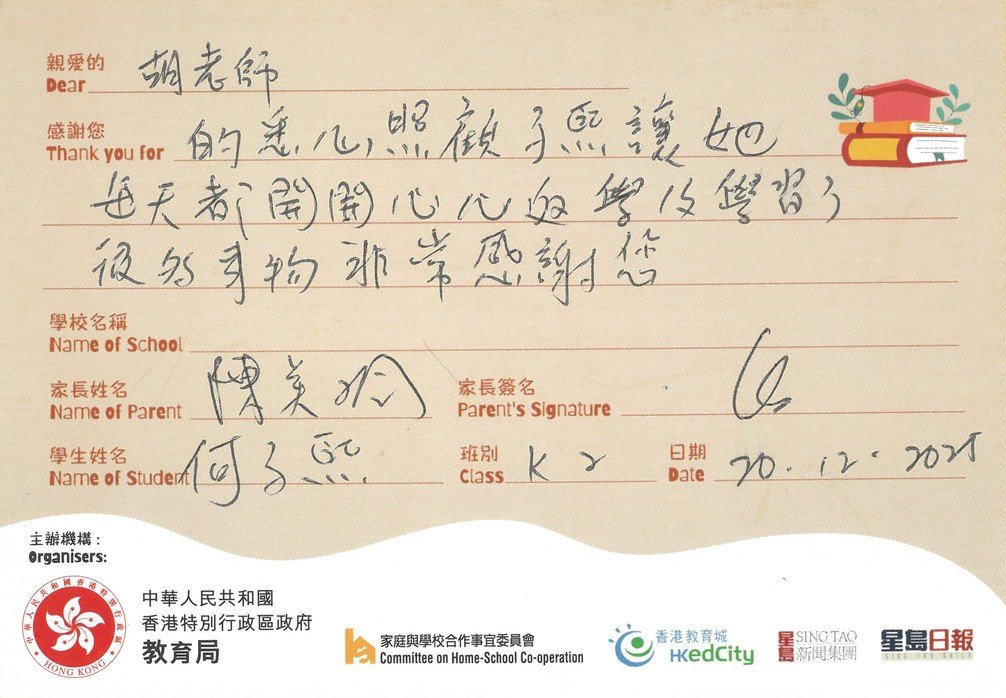 親愛的
Dear 胡老師
感謝您
Thank you for 的悉心照顧子熙讓她
每天都開開心心的學及學習了
很多事物非常感謝您
學校名稱
Name of School
家長姓名 家長簽名
Name of Parent 陳美玲 Parent's Signature
學生姓名 班別 日期
Name of Student 何子熙 Class K2 Date 20.12.2025
主辦機構：
Organisers:
中華人民共和國香港特別行政區
HONG KONG
中華人民共和國
香港特別行政區政府
教育局
家庭與學校合作事宜委員會
Committee on Home-School Co-operation
香港教育城
HKedCity
星島 SING TAO
新聞集團
星島日報
SING TAO DAILY